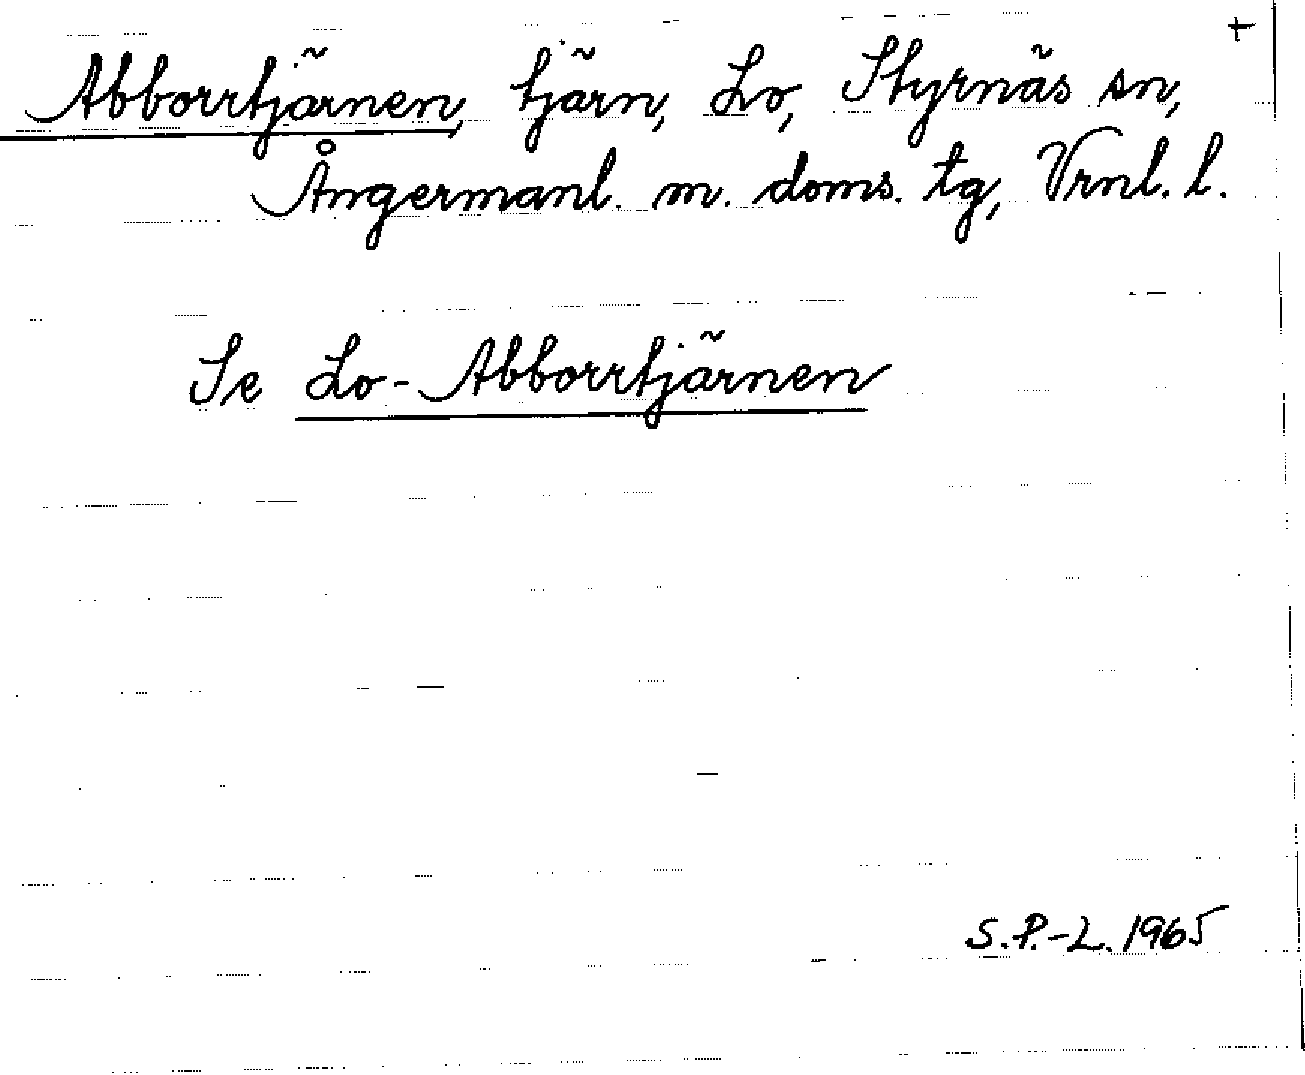 +
Abborrtjärnen, tjärn, Lo, Styrnäs sn,
Ångermanl. m. doms. tg, Vrnl. l.
Se Lo-Abborrtjärnen
S.P.-L. 1965